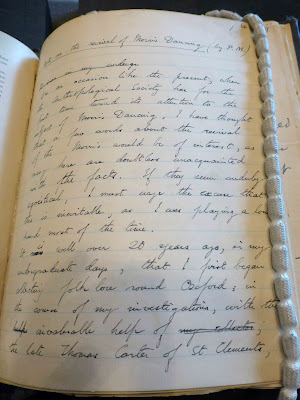 on the revival of Morris Dancing (by P.M.)
On an occasion like the present, when
the Anthropological Society has for the
first time turned its attention to the
subject of Morris Dancing, I have thought
that a few words about the revival
of the Morris would be of interest, as
many here are doubtless unacquainted
with the facts. If they seem unduly
egotistical, I must urge the excuse that
this is inevitable, as I was playing a lone
hand most of the time.
It is well over 20 years ago, in my
undergraduate days, that I first began
folk lore round Oxford; in
the course of my investigations, with the
invaluable help of my collector;
the late Thomas Carter of St Clements,